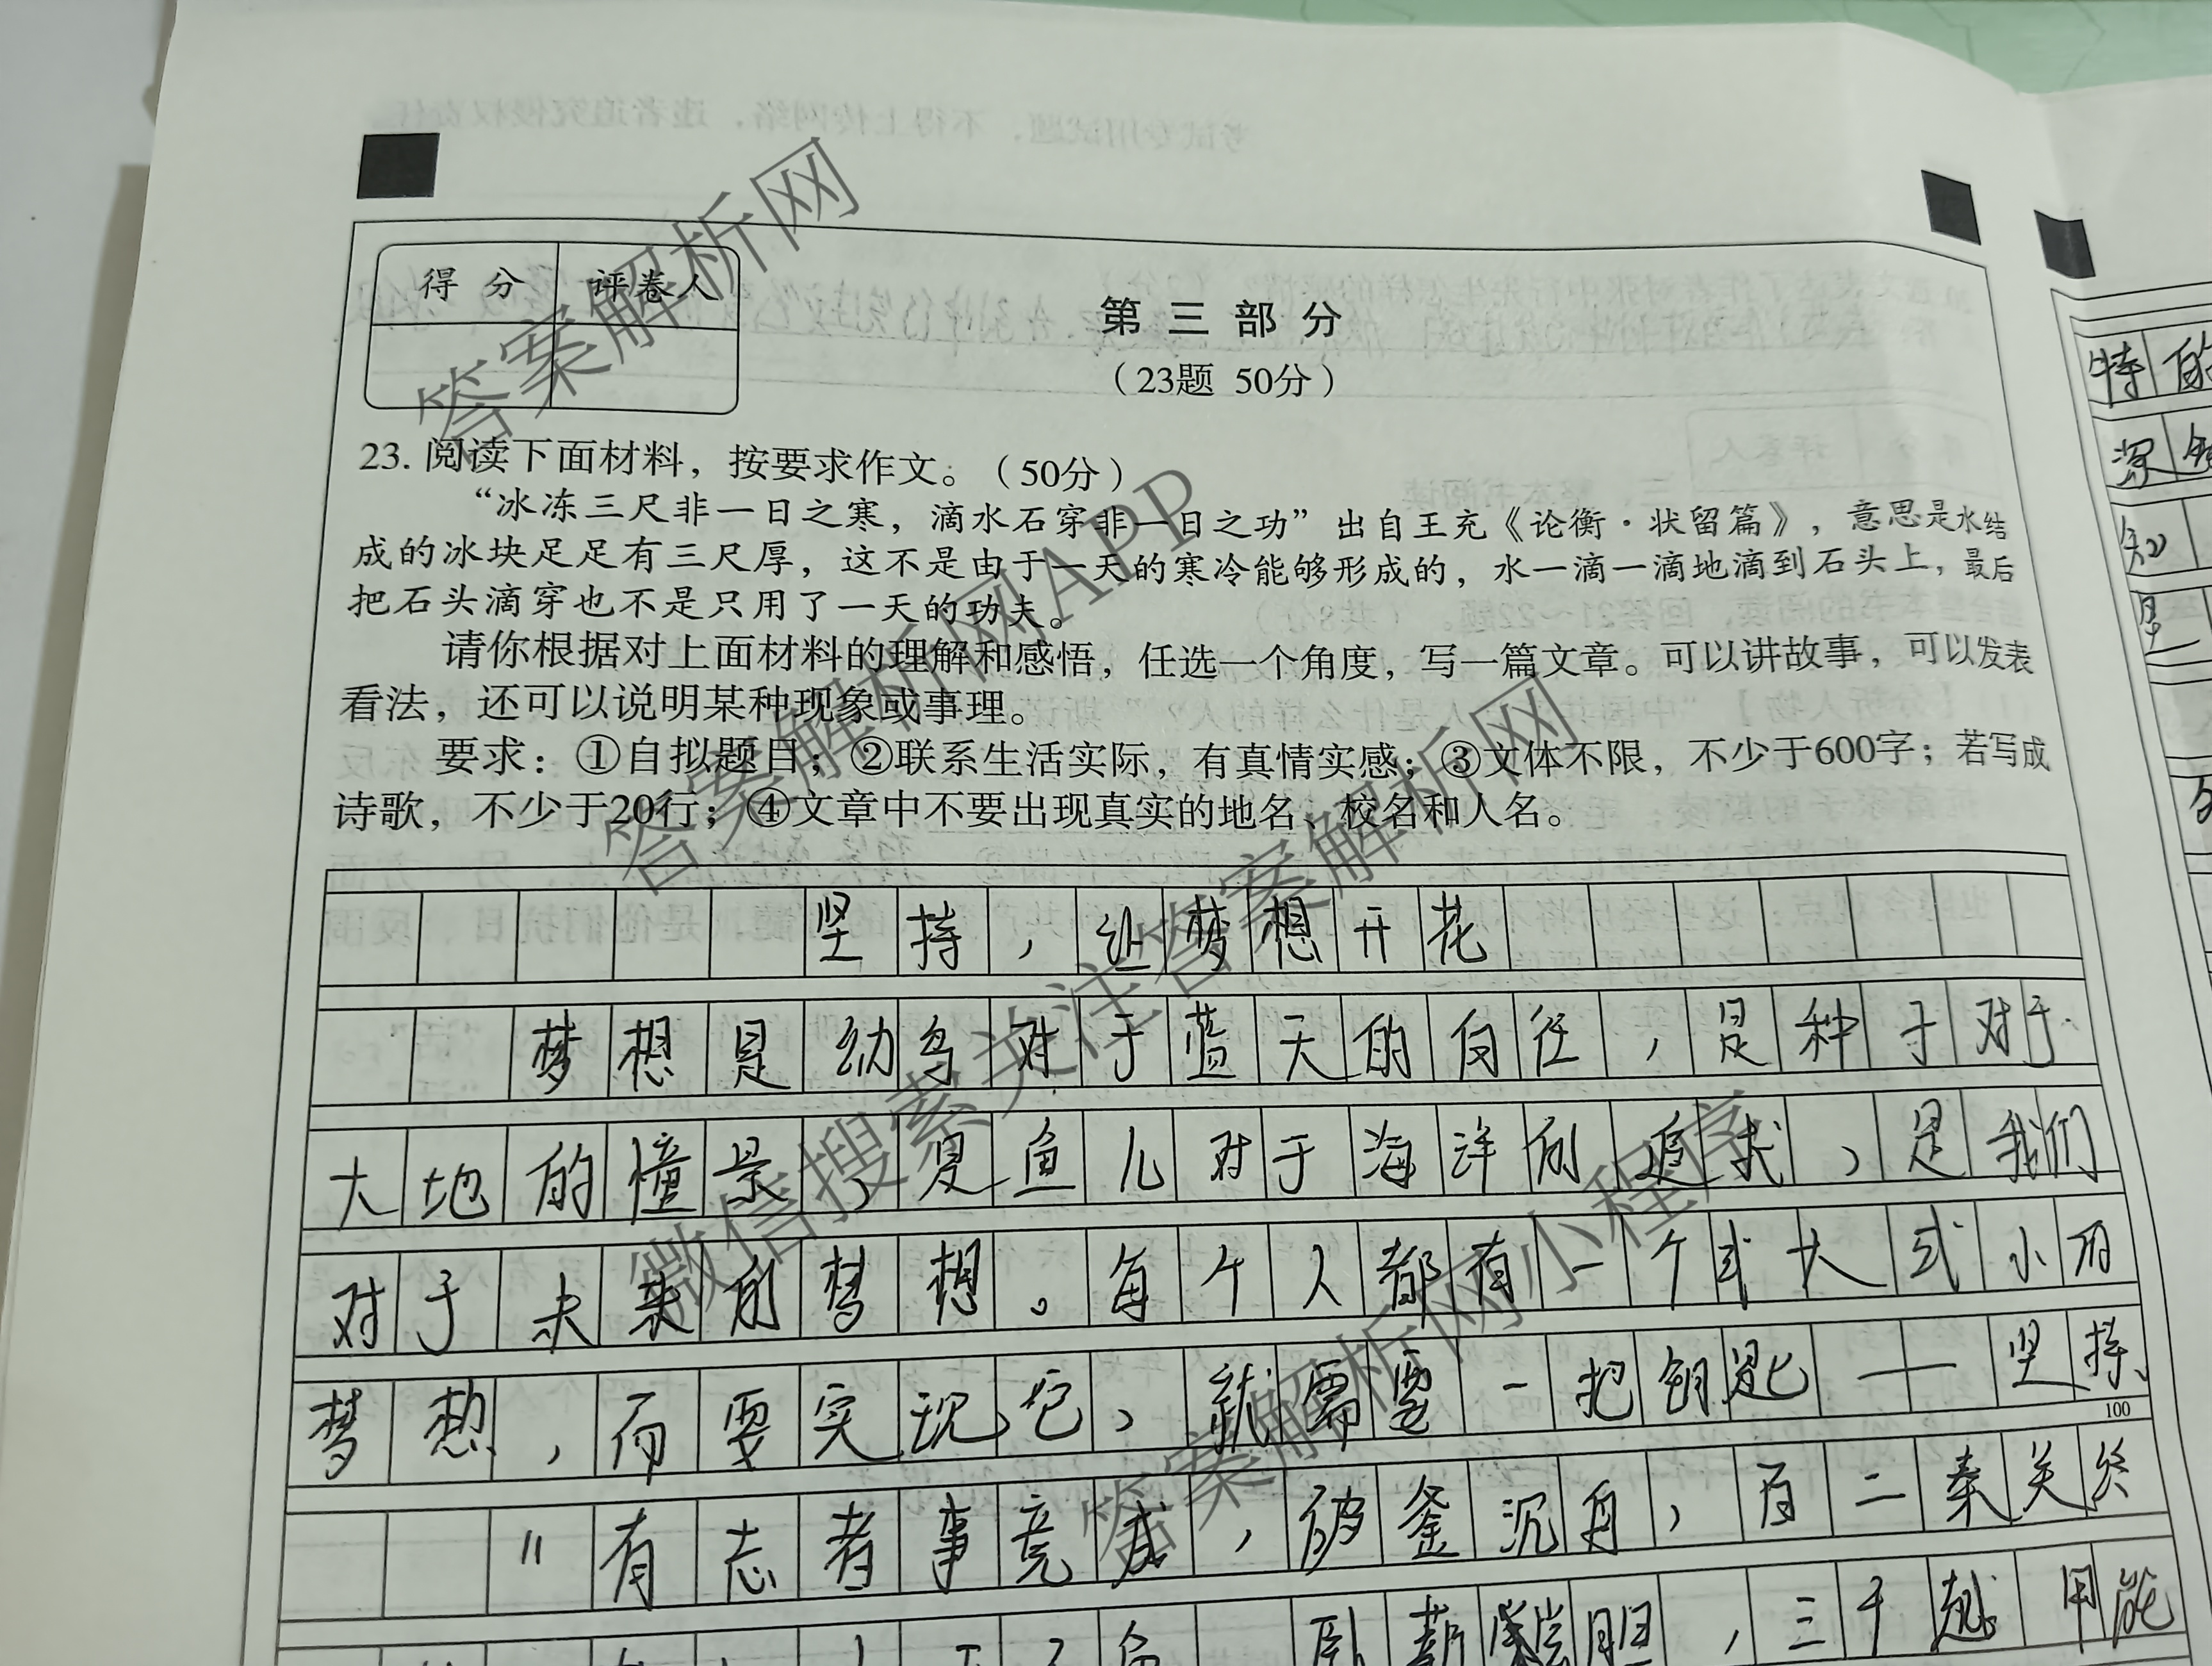 得 分
评卷人
第 三 部 分
（23题 50分）
23. 阅读下面材料，按要求作文。（50分）
“冰冻三尺非一日之寒，滴水石穿非一日之功”出自王充《论衡·状留篇》，意思是水结
成的冰块足足有三尺厚，这不是由于一天的寒冷能够形成的，水一滴一滴地滴到石头上，最后
把石头滴穿也不是只用了一天的功夫。
请你根据对上面材料的理解和感悟，任选一个角度，写一篇文章。可以讲故事，可以发表
看法，还可以说明某种现象或事理。
要求：①自拟题目；②联系生活实际，有真情实感；③文体不限，不少于600字；若写成
诗歌，不少于20行；④文章中不要出现真实的地名、校名和人名。
坚持，让梦想开花
梦想是幼鸟对于蓝天的向往，是种子对于
大地的憧憬，是鱼儿对于海洋的追求，是我们
对于未来的梦想。每个人都有一个或大或小的
梦想，而要实现它，就需要一把钥匙——坚持。
100
“有志者事竟成，破釜沉舟，百二秦关终
卧薪尝胆，三千越甲能
特的
深
知
答案解析网
答案解析网APP
微信搜索关注答案解析网
答案解析网小程序